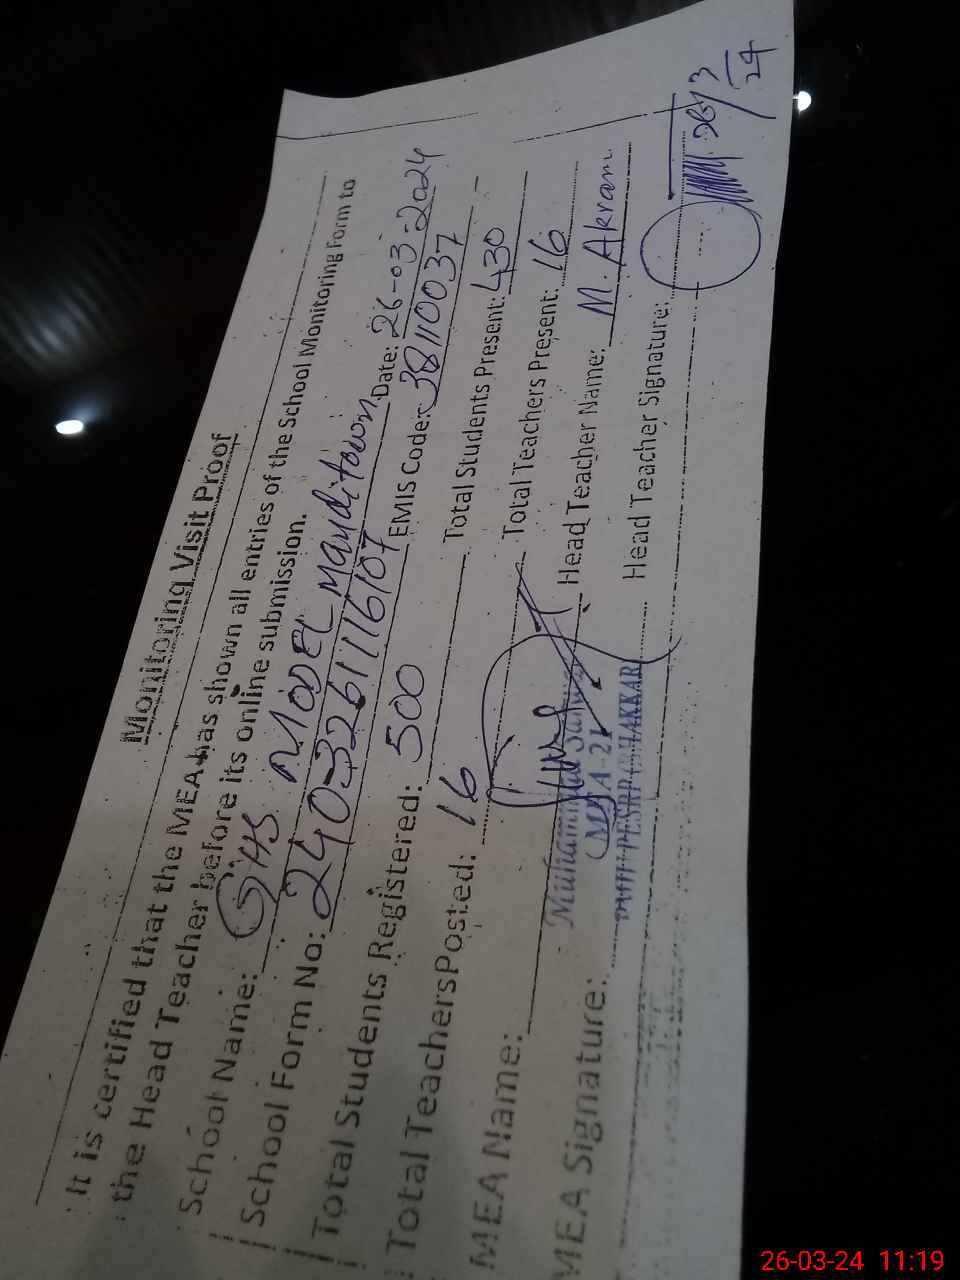 Monitoring Visit Proof
It is certified that the MEA has shown all entries of the School Monitoring Form to
the Head Teacher before its online submission.
School Name: GHS MODEL Manditown Date: 26-03-2024
School Form No: 2403261116107 EMIS Code: 38110037
Total Students Registered: 500 Total Students Present: 430
Total Teachers Posted: 16 Total Teachers Present: 16
MEA Name: Muhammad Head Teacher Name: M. Akram
(MEA-21)
MEA Signature: PESRP BHAKKAR Head Teacher Signature:
26/3/24
26-03-24 11:19